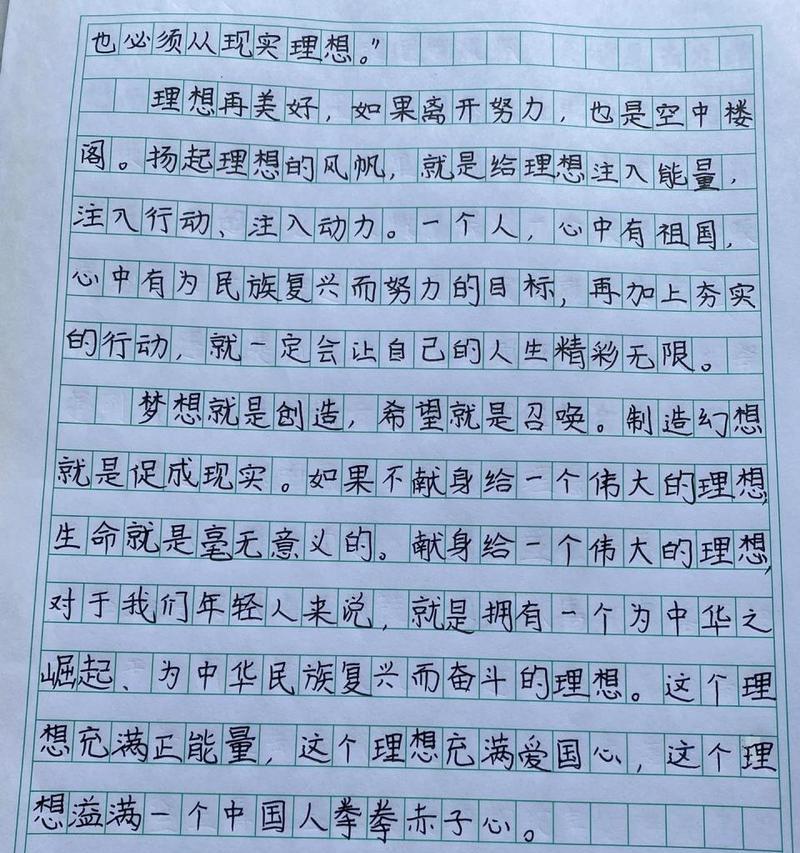 也必须从现实理想。”
理想再美好，如果离开努力，也是空中楼
阁。扬起理想的风帆，就是给理想注入能量，
注入行动、注入动力。一个人，心中有祖国，
心中有为民族复兴而努力的目标，再加上夯实
的行动，就一定会让自己的人生精彩无限。
梦想就是创造，希望就是召唤。制造幻想
就是促成现实。如果不献身给一个伟大的理想，
生命就是毫无意义的。献身给一个伟大的理想，
对于我们年轻人来说，就是拥有一个为中华之
崛起、为中华民族复兴而奋斗的理想。这个理
想充满正能量，这个理想充满爱国心，这个理
想溢满一个中国人拳拳赤子心。